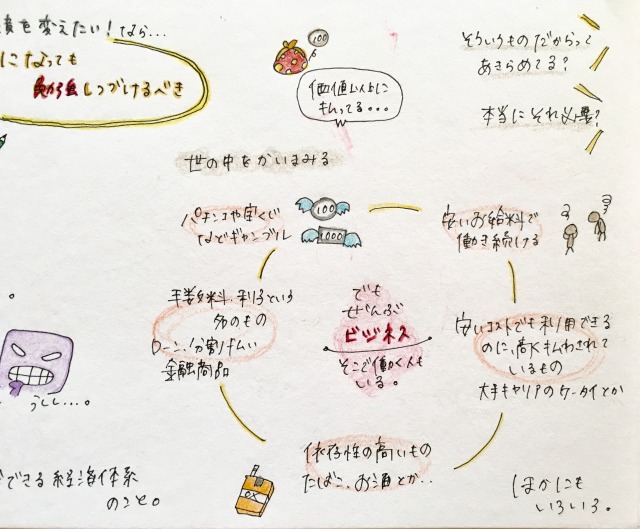 を変えたい！なら...
になっても
勉強しつづけるべき
100
価値以上に
払ってる...
そういうものだからって
あきらめてる？
本当にそれ必要？
世の中をかいまみる
パチンコや宝くじ
などギャンブル
100
1000
安いお給料で
働き続ける
手数料、利子という
名のもの
ローン、分割払い
金融商品
でも
ぜんぶ
ビジネス
そこで働く人も
いる。
安いコストでも利用できる
のに、高く払わされて
いるもの
大手キャリアのケータイとか
うしし...。
依存性の高いもの
たばこ、お酒とか..
できる経済体系
のこと。
ほかにも
いろいろ。